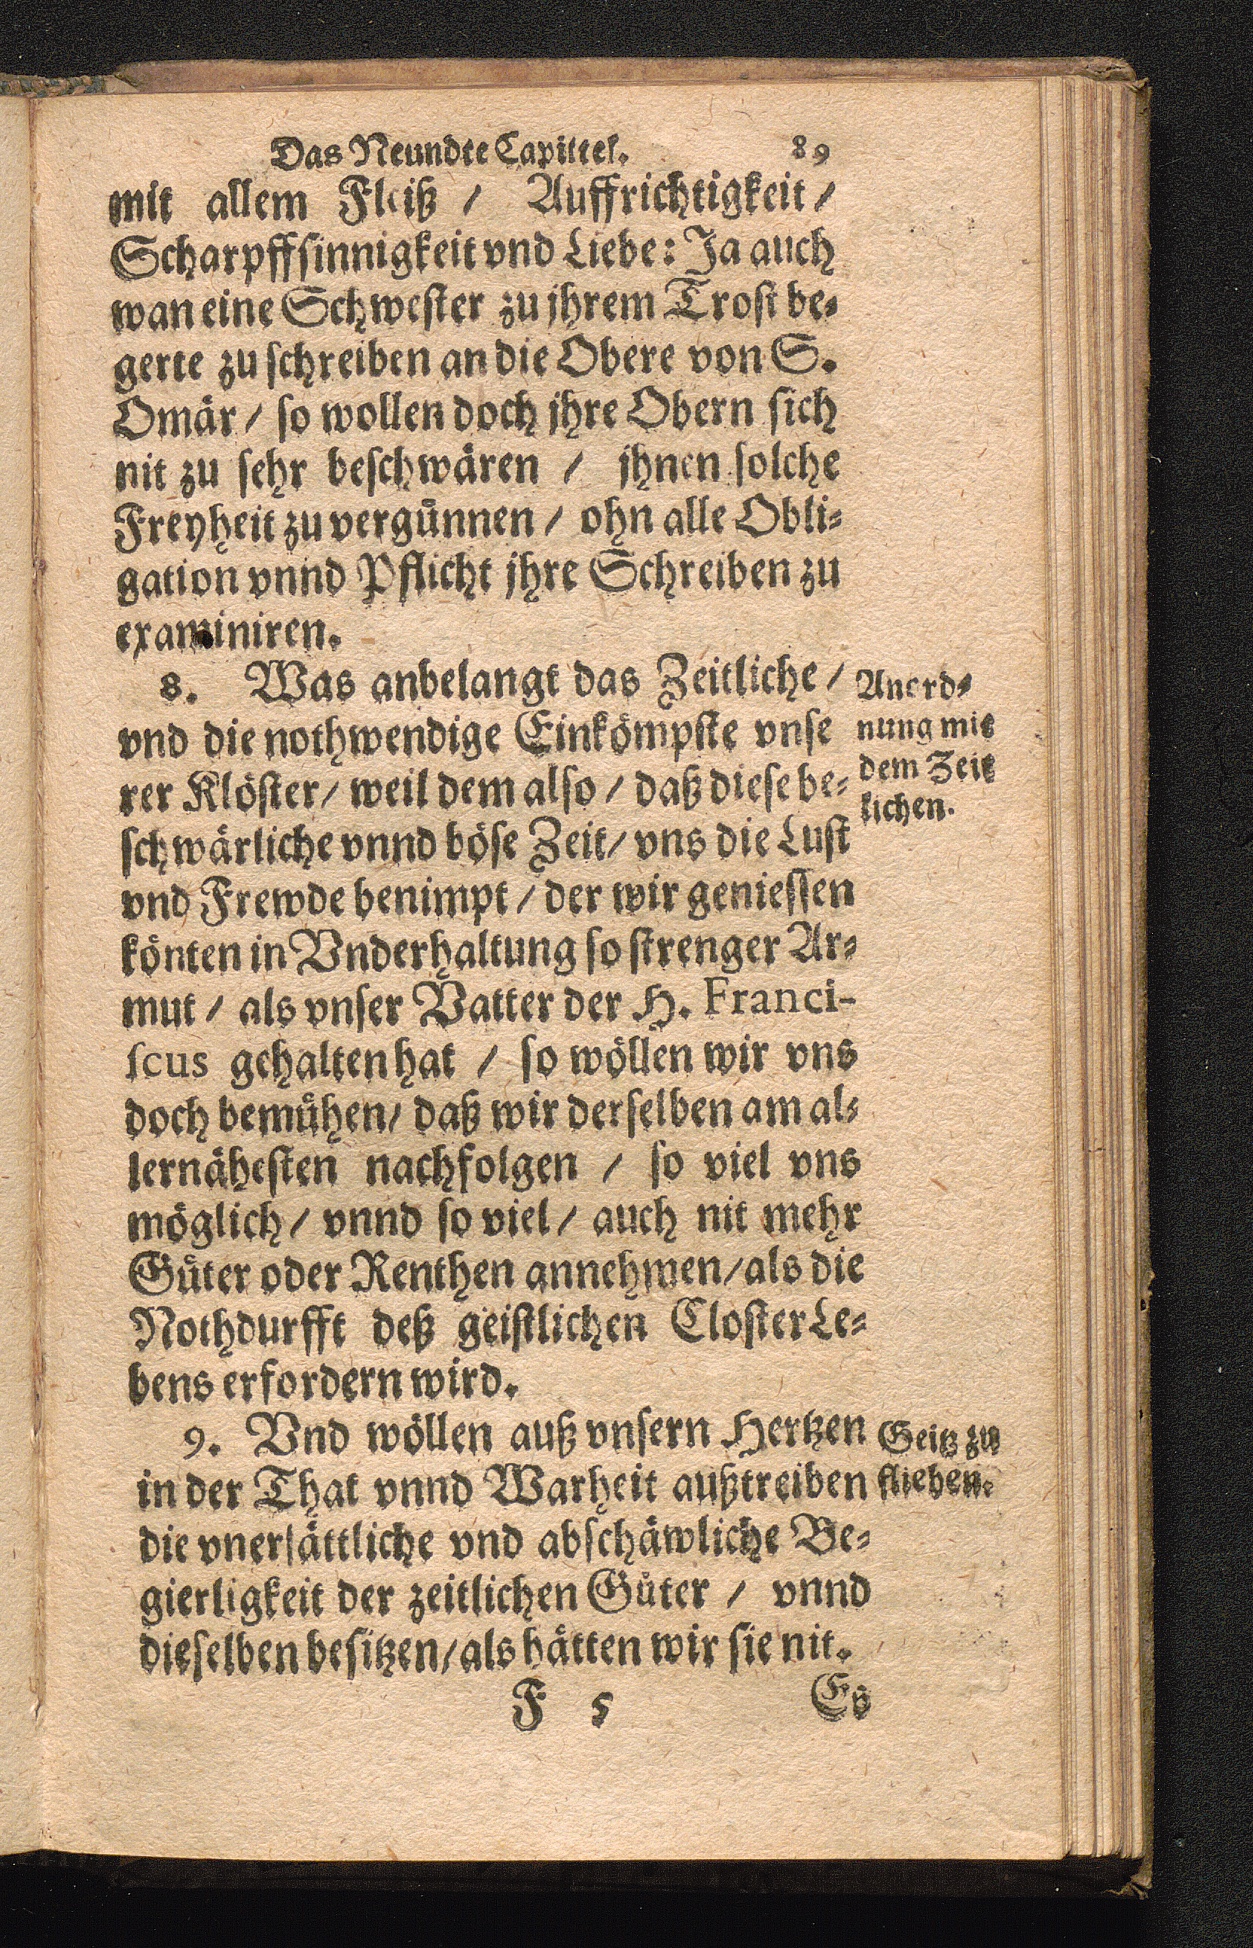 Das Neundte Capittel. 89
mit allem Fleiß / Auffrichtigkeit /
Scharpffsinnigkeit vnd Liebe: Ja auch
wan eine Schwester zu jhrem Trost be-
gerte zu schreiben an die Obere von S.
Omär / so wollen doch jhre Obern sich
nit zu sehr beschwären / jhnen solche
Freyheit zu vergünnen / ohn alle Obli-
gation vnnd Pflicht jhre Schreiben zu
examiniren.
8. Was anbelangt das Zeitliche /
vnd die nothwendige Einkömpste vnse
rer Klöster / weil dem also / daß diese be-
schwärliche vnnd böse Zeit / vns die Lust
vnd Frewde benimpt / der wir geniessen
könten in Vnderhaltung so strenger Ar-
mut / als vnser Vatter der H. Franci-
scus gehalten hat / so wöllen wir vns
doch bemühen / daß wir derselben am al-
lernähesten nachfolgen / so viel vns
möglich / vnnd so viel / auch nit mehr
Güter oder Renthen annehmen / als die
Nothdurfft deß geistlichen Closter Le-
bens erfordern wird.
Anord-
nung mit
dem Zeit
lichen.
9. Vnd wöllen auß vnsern Hertzen
in der That vnnd Warheit außtreiben
die vnersättliche vnd abschäwliche Be-
gierligkeit der zeitlichen Güter / vnnd
dieselben besitzen / als hätten wir sie nit.
Geitz zu
fliehen.
F 5 Es